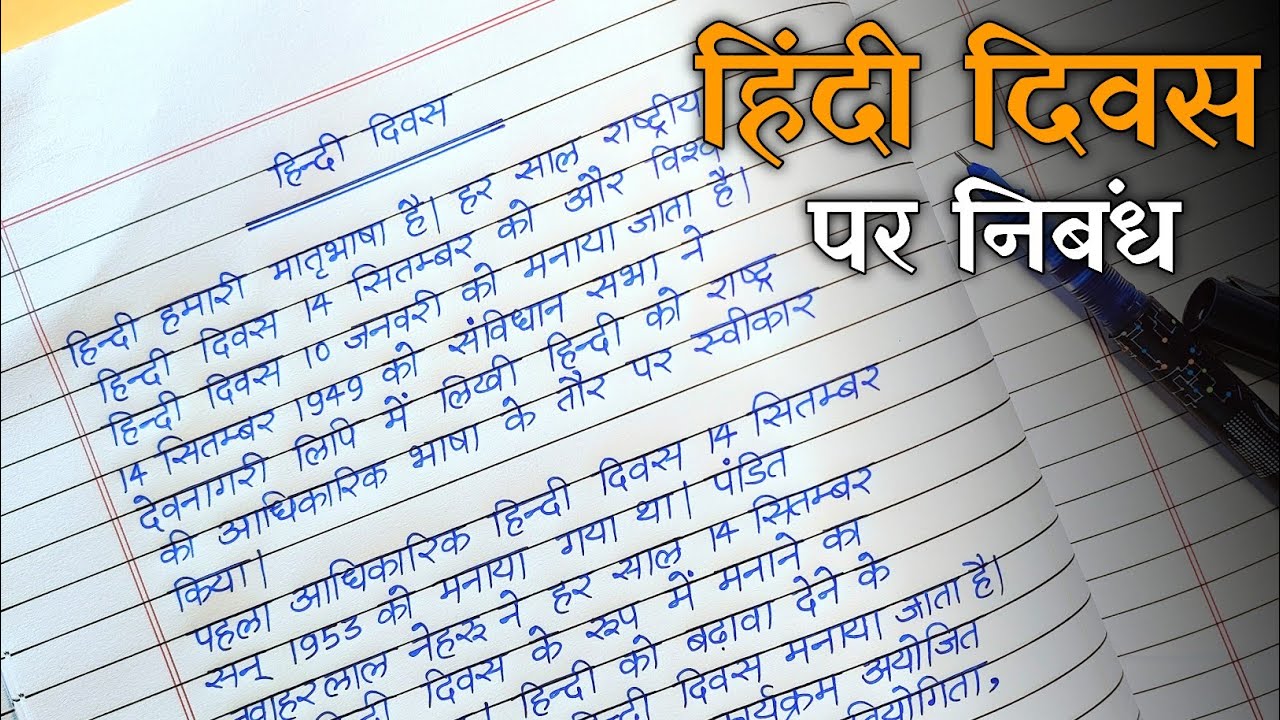 हिंदी दिवस
पर निबंध
हिन्दी दिवस
हिन्दी हमारी मातृभाषा है। हर साल राष्ट्रीय
हिन्दी दिवस 14 सितम्बर को और विश्व
हिन्दी दिवस 10 जनवरी को मनाया जाता है।
14 सितम्बर 1949 को संविधान सभा ने
देवनागरी लिपि में लिखी हिन्दी को राष्ट्र
की आधिकारिक भाषा के तौर पर स्वीकार
किया।
पहला आधिकारिक हिन्दी दिवस 14 सितम्बर
सन् 1953 को मनाया गया था। पंडित
जवाहरलाल नेहरू ने हर साल 14 सितम्बर
दिवस के रूप में मनाने का
हिन्दी को बढ़ावा देने के
दिवस मनाया जाता है।
कार्यक्रम अयोजित